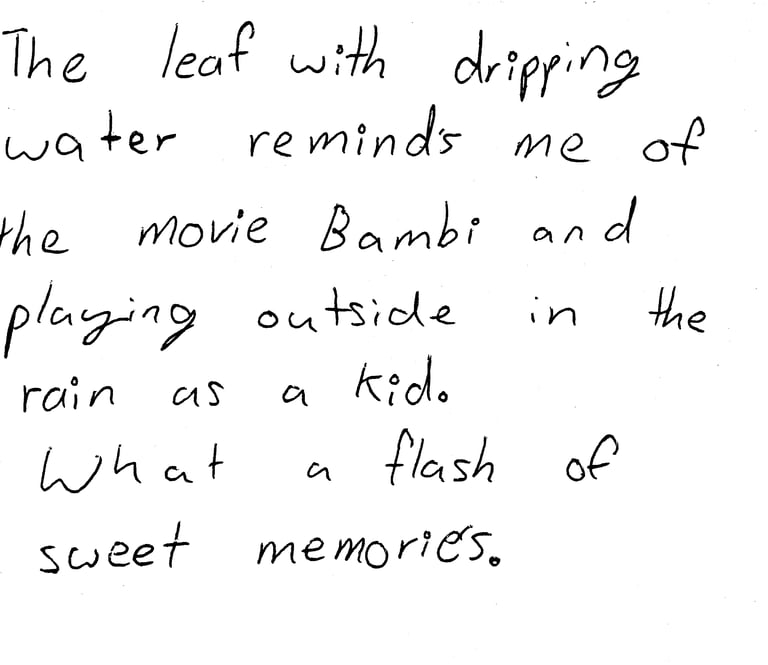 The leaf with dripping
water reminds me of
the movie Bambi and
playing outside in the
rain as a kid.
What a flash of
sweet memories.